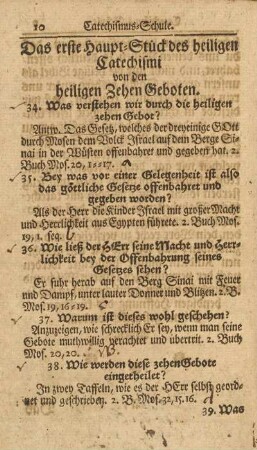 10 Catechismus-Schule.
Das erste Haupt-Stück des heiligen
Catechismi
von den
heiligen Zehen Geboten.
34. Was verstehen wir durch die heiligen
zehen Gebot?
Antw. Das Gesetz, welches der dreyeinige GOtt
durch Mosen dem Volck Israel auf dem Berge Si-
nai in der Wüsten offenbahret und gegeben hat. 2.
Buch Mos. 20, 1-17.
35. Bey was vor einer Gelegenheit ist also
das göttliche Gesetze offenbahret und
gegeben worden?
Als der Herr die Kinder Israel mit grosser Macht
und Herrlichkeit aus Egypten führete. 2. Buch Mos.
19, 1. seq.
36. Wie ließ der HErr seine Macht und Herr-
lichkeit bey der Offenbahrung seines
Gesetzes sehen?
Er fuhr herab auf den Berg Sinai mit Feuer
und Dampf, unter lauter Donner und Blitzen. 2. B.
Mos. 19, 16-19.
37. Warum ist dieses wohl geschehen?
Anzuzeigen, wie schrecklich Er sey, wenn man seine
Gebote muthwillig verachtet und übertrit. 2. Buch
Mos. 20, 20.
38. Wie werden diese zehen Gebote
eingetheilet?
In zwey Taffeln, wie es der HErr selbst geord-
net und geschrieben. 2. B. Mos. 32, 15. 16.
39. Was